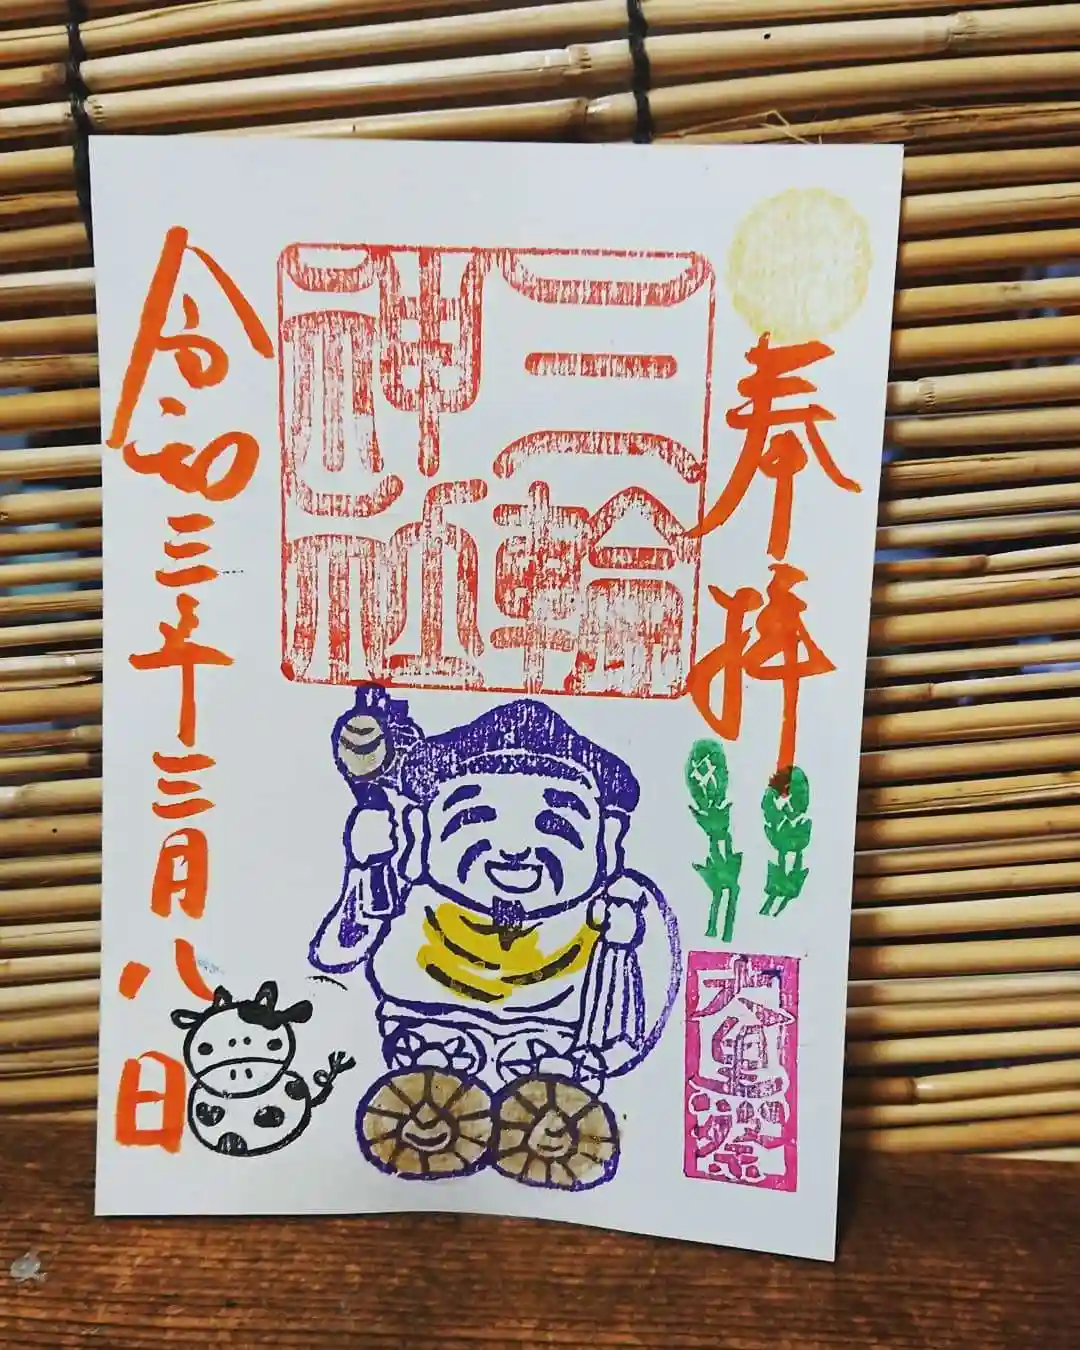 奉拝
大黒祭
三輪
神社
令和三年三月八日